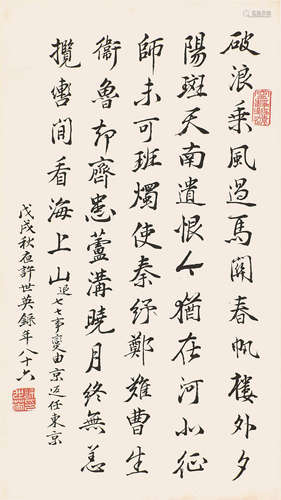 破浪乘風過馬關春帆樓外夕
陽斑天南遺恨人猶在河北征
師未可班燭使秦紓鄭難曹生
衛魯却齊患蘆溝曉月終無恙
攬轡閒看海上山追七七事變由京返任東京
戊戌秋夜許世英錄年八十六